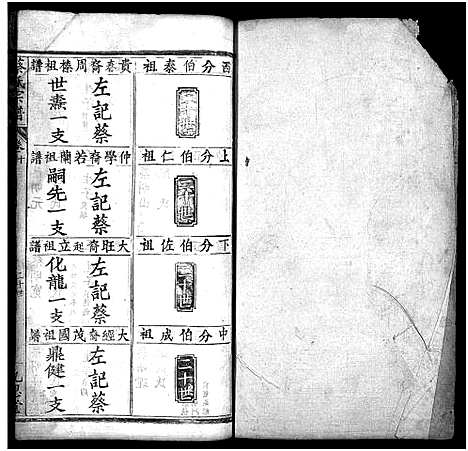 酉分伯泰祖
二十世
貴春裔周榛祖譜
左記蔡
世燾一支
上分伯仁祖
二十世
仲學裔若蘭祖譜
左記蔡
嗣先一支
下分伯佐祖
二十世
大旺裔起立祖譜
左記蔡
化龍一支
中分伯成祖
二十世
大經裔茂國祖譜
左記蔡
鼎健一支
蔡氏宗譜